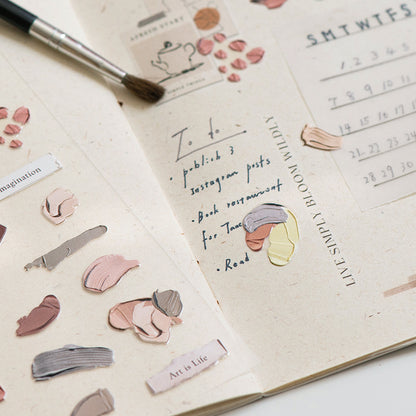 To do
· publich 3
Instagram posts
· Book restaurant
for Jan
· Read
LIVE SIMPLY BLOOM WILDLY
S M T W T F S
1 2 3 4
7 8 9 10 11
14 15 16 17 18
21 22 23 24 25
28 29 30
magination
Art is Life